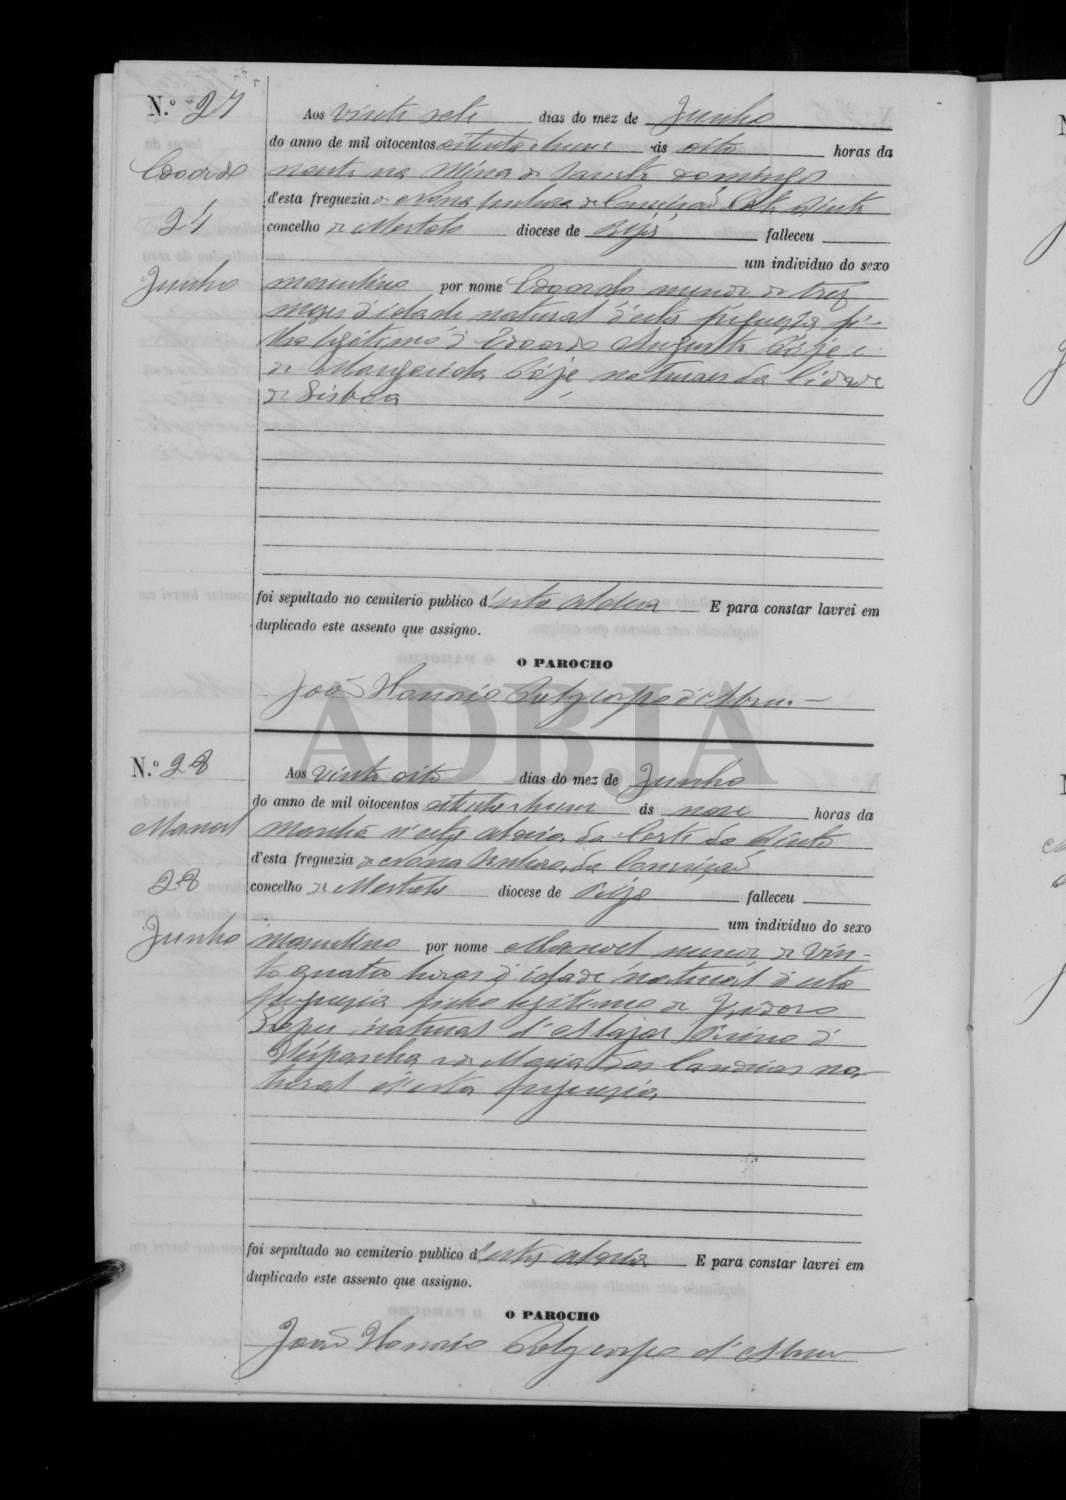 N.º 27
Aos vinte sete dias do mez de Junho
do anno de mil oitocentos oitenta e hum ás oito horas da
Edoardo
noute na Mina de Sam Domingos
d'esta freguezia de Nossa Senhora da Conceição Corte do Pinto
27
concelho de Mertola diocese de Beja falleceu
um individuo do sexo
Junho
masculino por nome Edoardo menor de trez
mezes d'idade natural d'esta freguezia fi-
lho legitimo d'Edoardo Augusto e
de Margarida naturaes da Cidade
de Lisboa
foi sepultado no cemiterio publico d'esta aldeia E para constar lavrei em
duplicado este assento que assigno.
O PAROCHO
João Honorio Polycarpo d'Abreu
ADBJA
N.º 28
Aos vinte oito dias do mez de Junho
do anno de mil oitocentos oitenta e hum ás nove horas da
Manoel
manhã n'esta aldeia da Corte do Pinto
d'esta freguezia de Nossa Senhora da Conceição
28
concelho de Mertola diocese de Beja falleceu
um individuo do sexo
Junho
masculino por nome Manoel menor de vin-
te quatro horas d'idade natural d'esta
freguezia filho legitimo de Izidoro
Lopes natural d'Alajar Reino d'
Hespanha e de Maria das Candeias na-
tural d'esta freguezia
foi sepultado no cemiterio publico d'esta aldeia E para constar lavrei em
duplicado este assento que assigno.
O PAROCHO
João Honorio Polycarpo d'Abreu